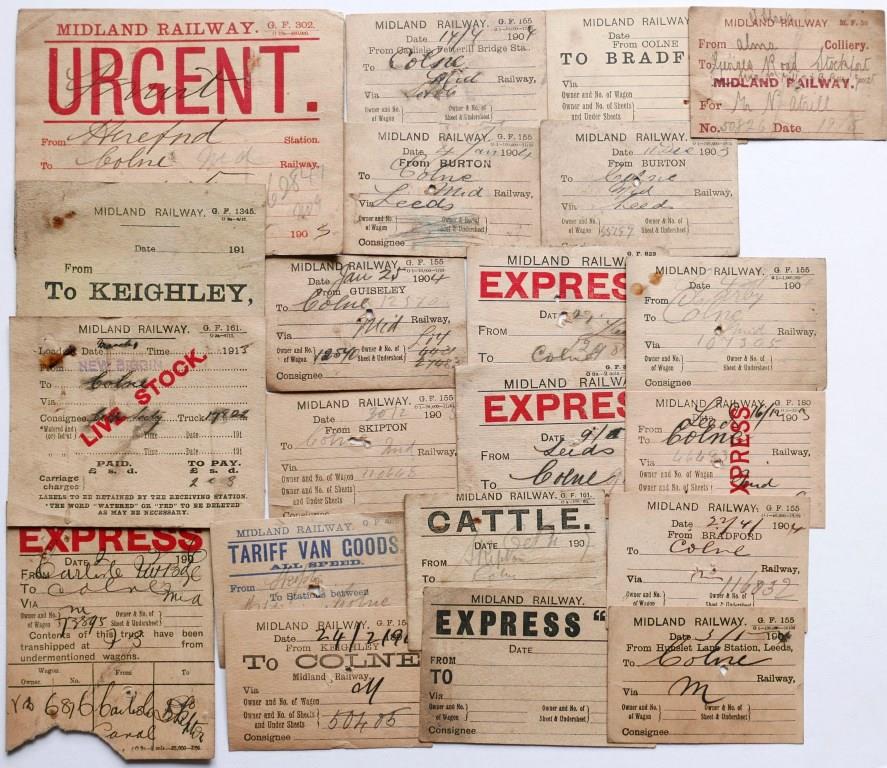 MIDLAND RAILWAY. G. F. 302.
URGENT.
From Hereford Station.
To Colne Mid Railway,
190 5
MIDLAND RAILWAY. G. F. 155
Date 19/4 1904
From Carlisle, Petterill Bridge Sta.
To Colne
Mid Railway,
Via Leeds
Owner and No. of Wagon
Owner & No. of Sheet & Undersheet
MIDLAND RAILWAY.
Date
From COLNE
TO BRADF
Via
Owner and No. of Wagon
Owner and No. of Sheets and Under Sheets
MIDLAND RAILWAY. M. F. 30
From Alma Colliery.
To Georges Road Stockport
MIDLAND RAILWAY.
For Mr N.
No. 50826 Date
MIDLAND RAILWAY. G. F. 155
Date, 4 Jan 1904
From BURTON
To Colne
Mid Railway,
Via Leeds
Owner and No. of Wagon
Owner & No. of Sheet & Undersheet
Consignee
MIDLAND RAILWAY. G. F. 155
Date 11 Dec 1903
From BURTON
To Colne
Mid Railway,
Via Leeds
Owner and No. of Wagon
Owner & No. of Sheet & Undersheet
MIDLAND RAILWAY. G. F. 1345.
Date 191
From
To KEIGHLEY,
MIDLAND RAILWAY. G. F. 155
Date Jan 25 1904
From GUISELEY
To Colne 12540
Mid Railway,
Via
Owner and No. of Wagon 12540
Owner & No. of Sheet & Undersheet
Consignee
G. F. 829
MIDLAND RAILWAY
EXPRESS
DATE
FROM
To Colne
MIDLAND RAILWAY. G. F. 155
Date 190
From
To Colne
Mid Railway,
Via 104305
Owner and No. of Wagon
Owner & No. of Sheet & Undersheet
Consignee
MIDLAND RAILWAY. G. F. 161.
Loaded Date March Time 191 3
From NEW BIGGIN
To Colne
Via
Consignee Truck
LIVE STOCK.
"Watered and (or) fed" at) Time Date 191
Time Date 191
Time Date 191
PAID. TO PAY.
£ s. d. £ s. d.
Carriage charges 2 8
LABELS TO BE DETAINED BY THE RECEIVING STATION.
THE WORD "WATERED" OR "FED" TO BE DELETED
AS MAY BE NECESSARY.
MIDLAND RAILWAY. G. F. 155
Date 30/12 190 3
From SKIPTON
To Colne
Mid Railway,
Via
Owner and No. of Wagon
Owner and No. of Sheets and Under Sheets
MIDLAND RAILWAY
EXPRES
DATE 9/
FROM Leeds
To Colne
MIDLAND RAILWAY. G. F. 180
Date 16/12 190 3
From Leeds
To Colne
Via
XPRESS
Owner and No. of Wagon
Owner and No. of Sheets and Under Sheets
Mid
EXPRESS
DATE 190
FROM Carlisle
To Colne
VIA m Mid
Owner & No. of Wagon 12895
Owner & No. of Sheet & Undersheet
Contents of this truck have been
transhipped at from
undermentioned wagons.
Wagon. From To
Owner. No.
6816 Carlisle
Canal
MIDLAND RAILWAY. G. F.
TARIFF VAN GOODS.
ALL SPEED.
From Skipton
To Stations between
Colne
MIDLAND RAILWAY. G. F. 161.
CATTLE.
DATE Oct 11 190
Skipton
Colne
MIDLAND RAILWAY. G. F. 155
Date 22/4/ 190 4
From BRADFORD
To Colne
Railway,
Via m
Owner and No. of Wagon 116832
Owner & No. of Sheet & Undersheet
MIDLAND RAILWAY. G. F. 155
Date 24/2/190
From KEIGHLEY
To COLNE
Midland Railway.
Via M
Owner and No. of Wagon
Owner and No. of Sheets and Under Sheets 50405
Consignee
MIDLAND RAILWAY.
EXPRESS "
DATE
FROM
TO
VIA
Owner & No. of Wagon
Owner & No. of Sheet & Undersheet
Consignee
MIDLAND RAILWAY. G. F. 155
Date 3/5 190
From Hunslet Lane Station, Leeds,
To Colne
Railway,
Via M
Owner and No. of Wagon
Owner & No. of Sheet & Undersheet
Consignee